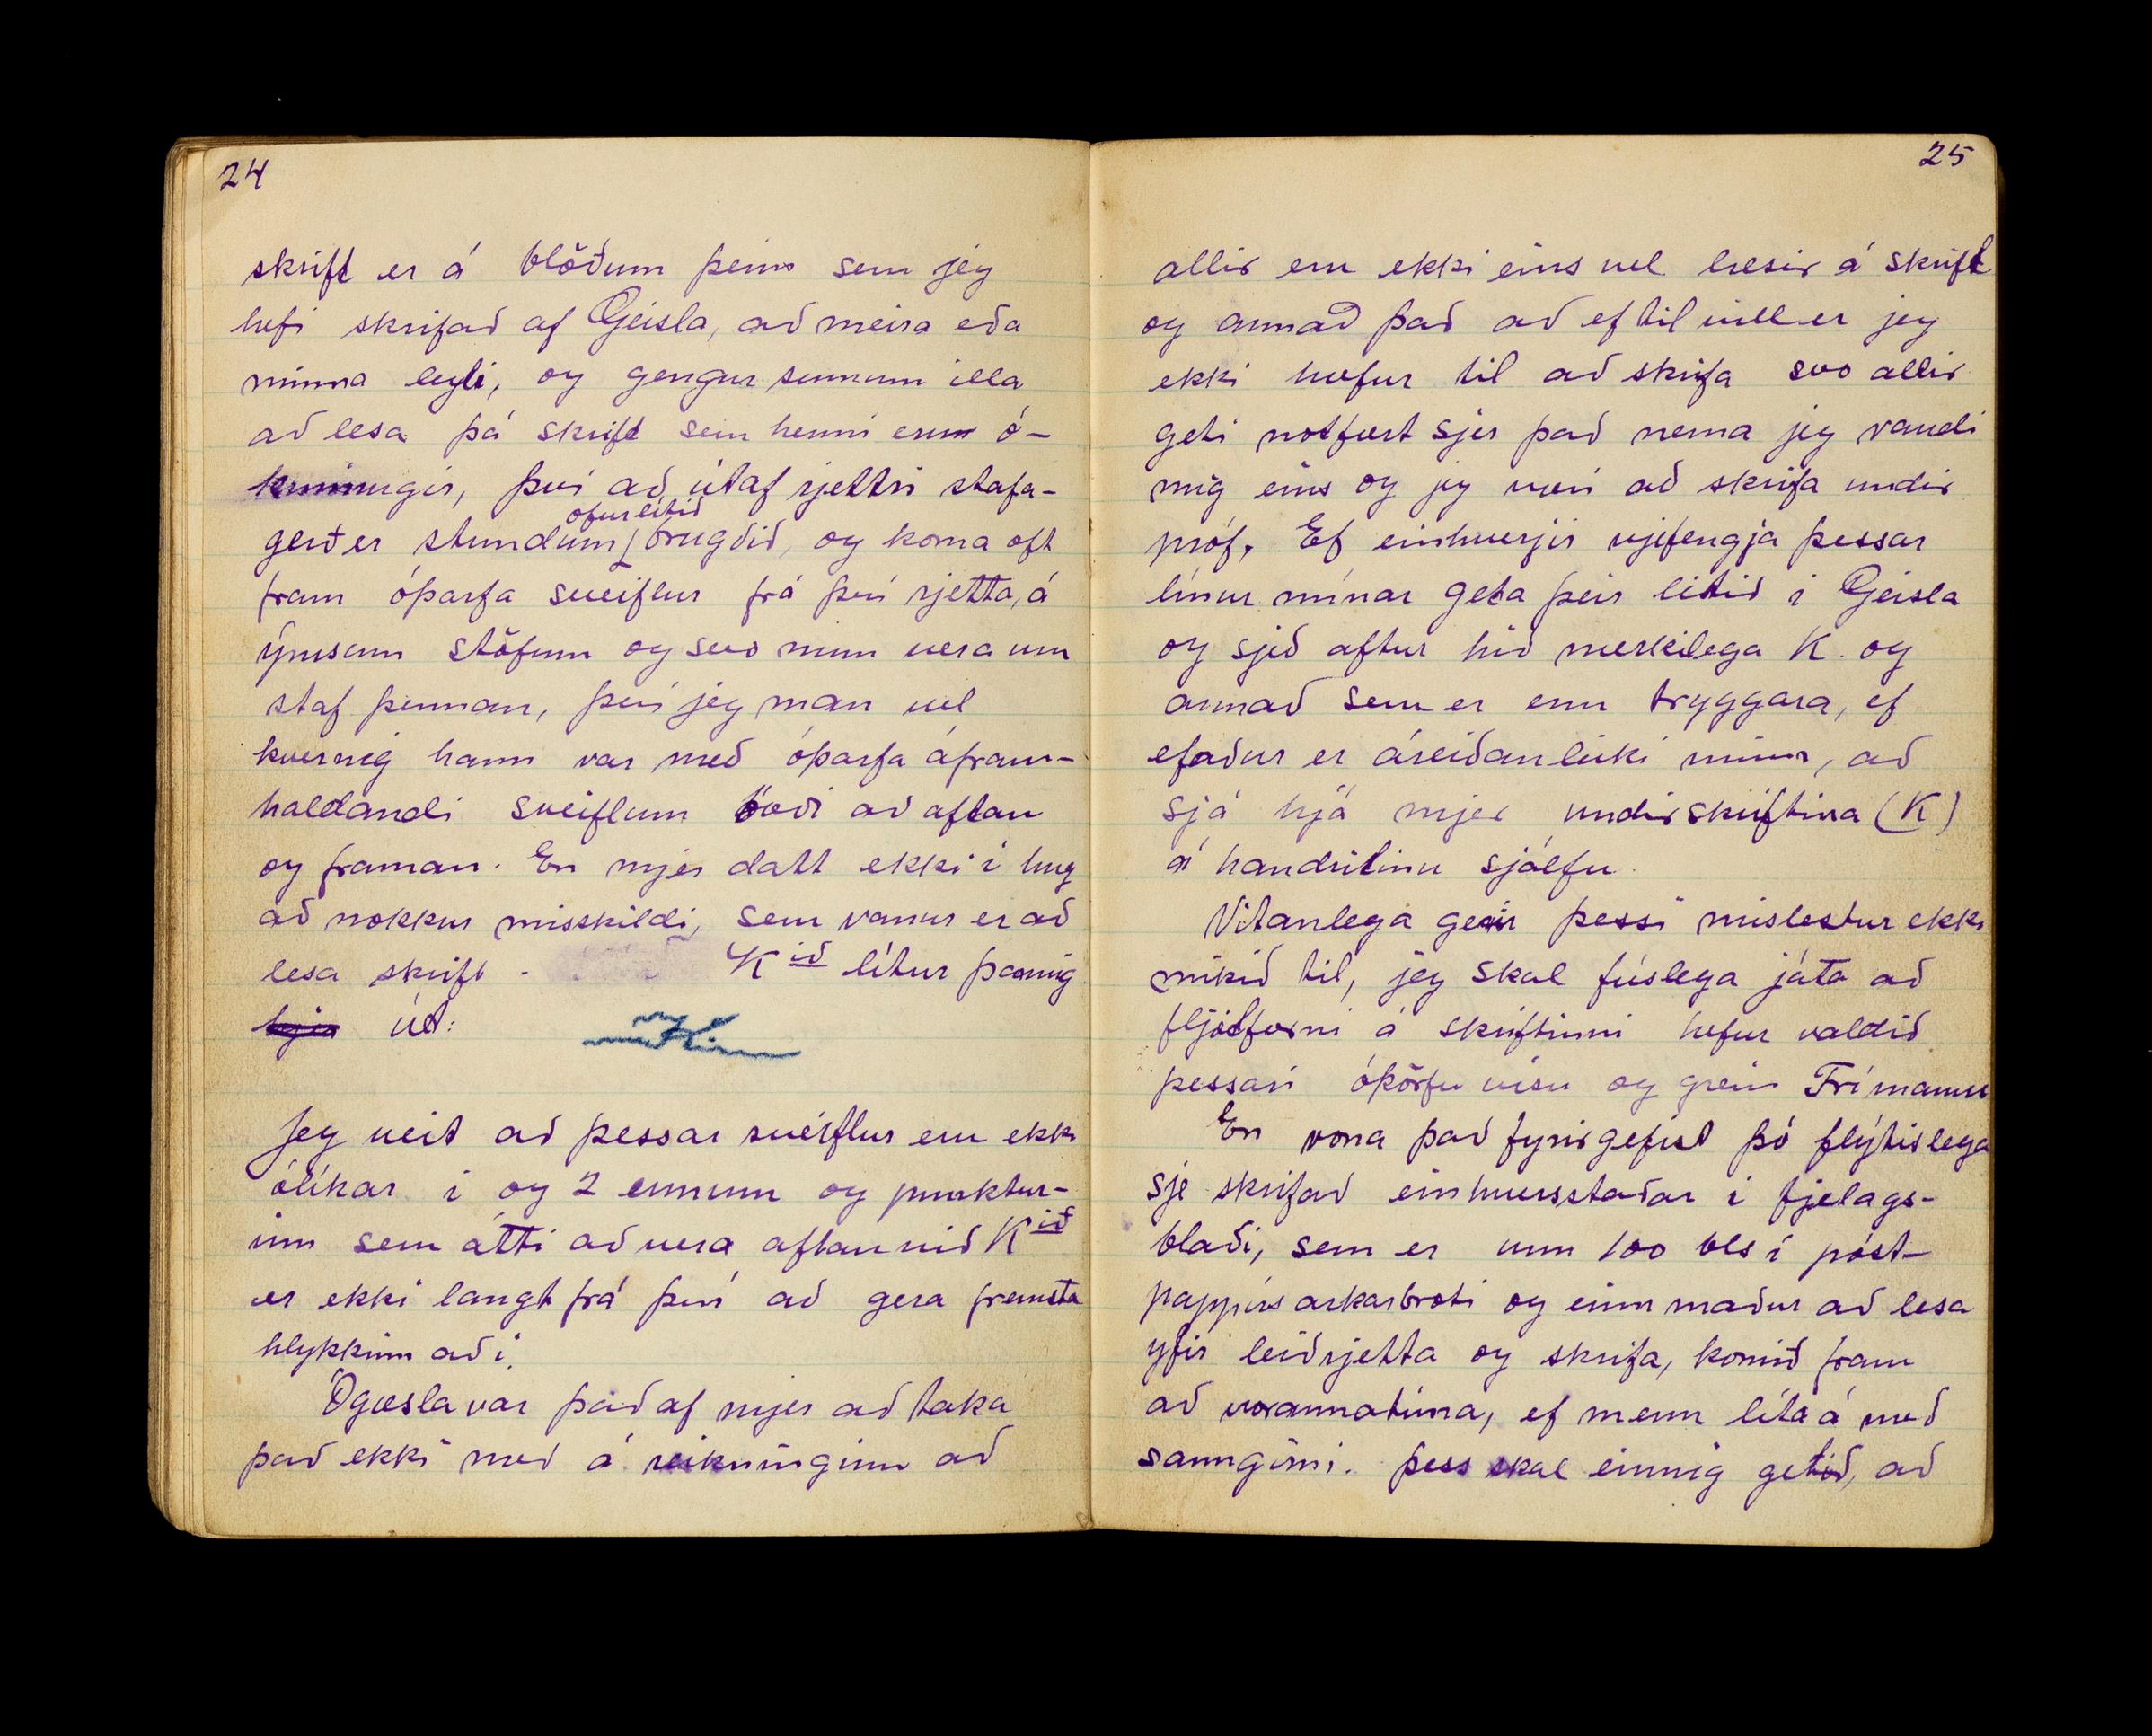 24
skrift er á blöðum þeim sem jeg
hefi skrifað af Geisla, að meira eða
minna leyti, og gengur sumum illa
að lesa þá skrift sem henni erum ó-
kunnugir, því að útaf rjettri stafa-
gerð er stundum ofurlítið brugðið, og koma oft
fram óþarfa sveiflur frá því rjetta, á
ýmsum stöfum og svo mun vera um
staf þennan, því jeg man vel
hvernig hann var með óþarfa áfram-
haldandi sveiflum bæði að aftan
og framan. En mjer datt ekki í hug
að nokkur misskildi, sem vanur er að
lesa skrift. K ið lítur þannig
hjá út:
Jeg veit að þessar sveiflur eru ekki
ólíkar i og 2 ennum og punktur-
inn sem átti að vera aftan við K ið
er ekki langt frá því að gera fremsta
hlykkinn að i.
Ógæsla var það af mjer að taka
það ekki með á reikninginn að
25
allir eru ekki eins vel læsir á skrift
og annað það að ef til vill er jeg
ekki hæfur til að skrifa svo allir
geti notfært sjer það nema jeg vandi
mig eins og jeg væri að skrifa undir
próf. Ef einhverjir vjefengja þessar
línur mínar geta þeir litið í Geisla
og sjeð aftur hið merkilega K. og
annað sem er enn tryggara, ef
efaður er áreiðanleiki minn, að
sjá hjá mjer undirskriftina (K)
á handritinu sjálfu.
Vitanlega gerir þessi mislestur ekki
mikið til, jeg skal fúslega játa að
fljótfærni á skriftinni hefur valdið
þessari óþörfu vísu og grein Frímanns
En vona það fyrirgefist þó flýtislega
sje skrifað einhversstaðar í fjelags-
blaði, sem er um 100 bls í póst-
pappírs arkarbroti og einn maður að lesa
yfir leiðrjetta og skrifa, komið fram
að vorannatíma, ef menn líta á með
sanngirni. Þess skal einnig getið, að